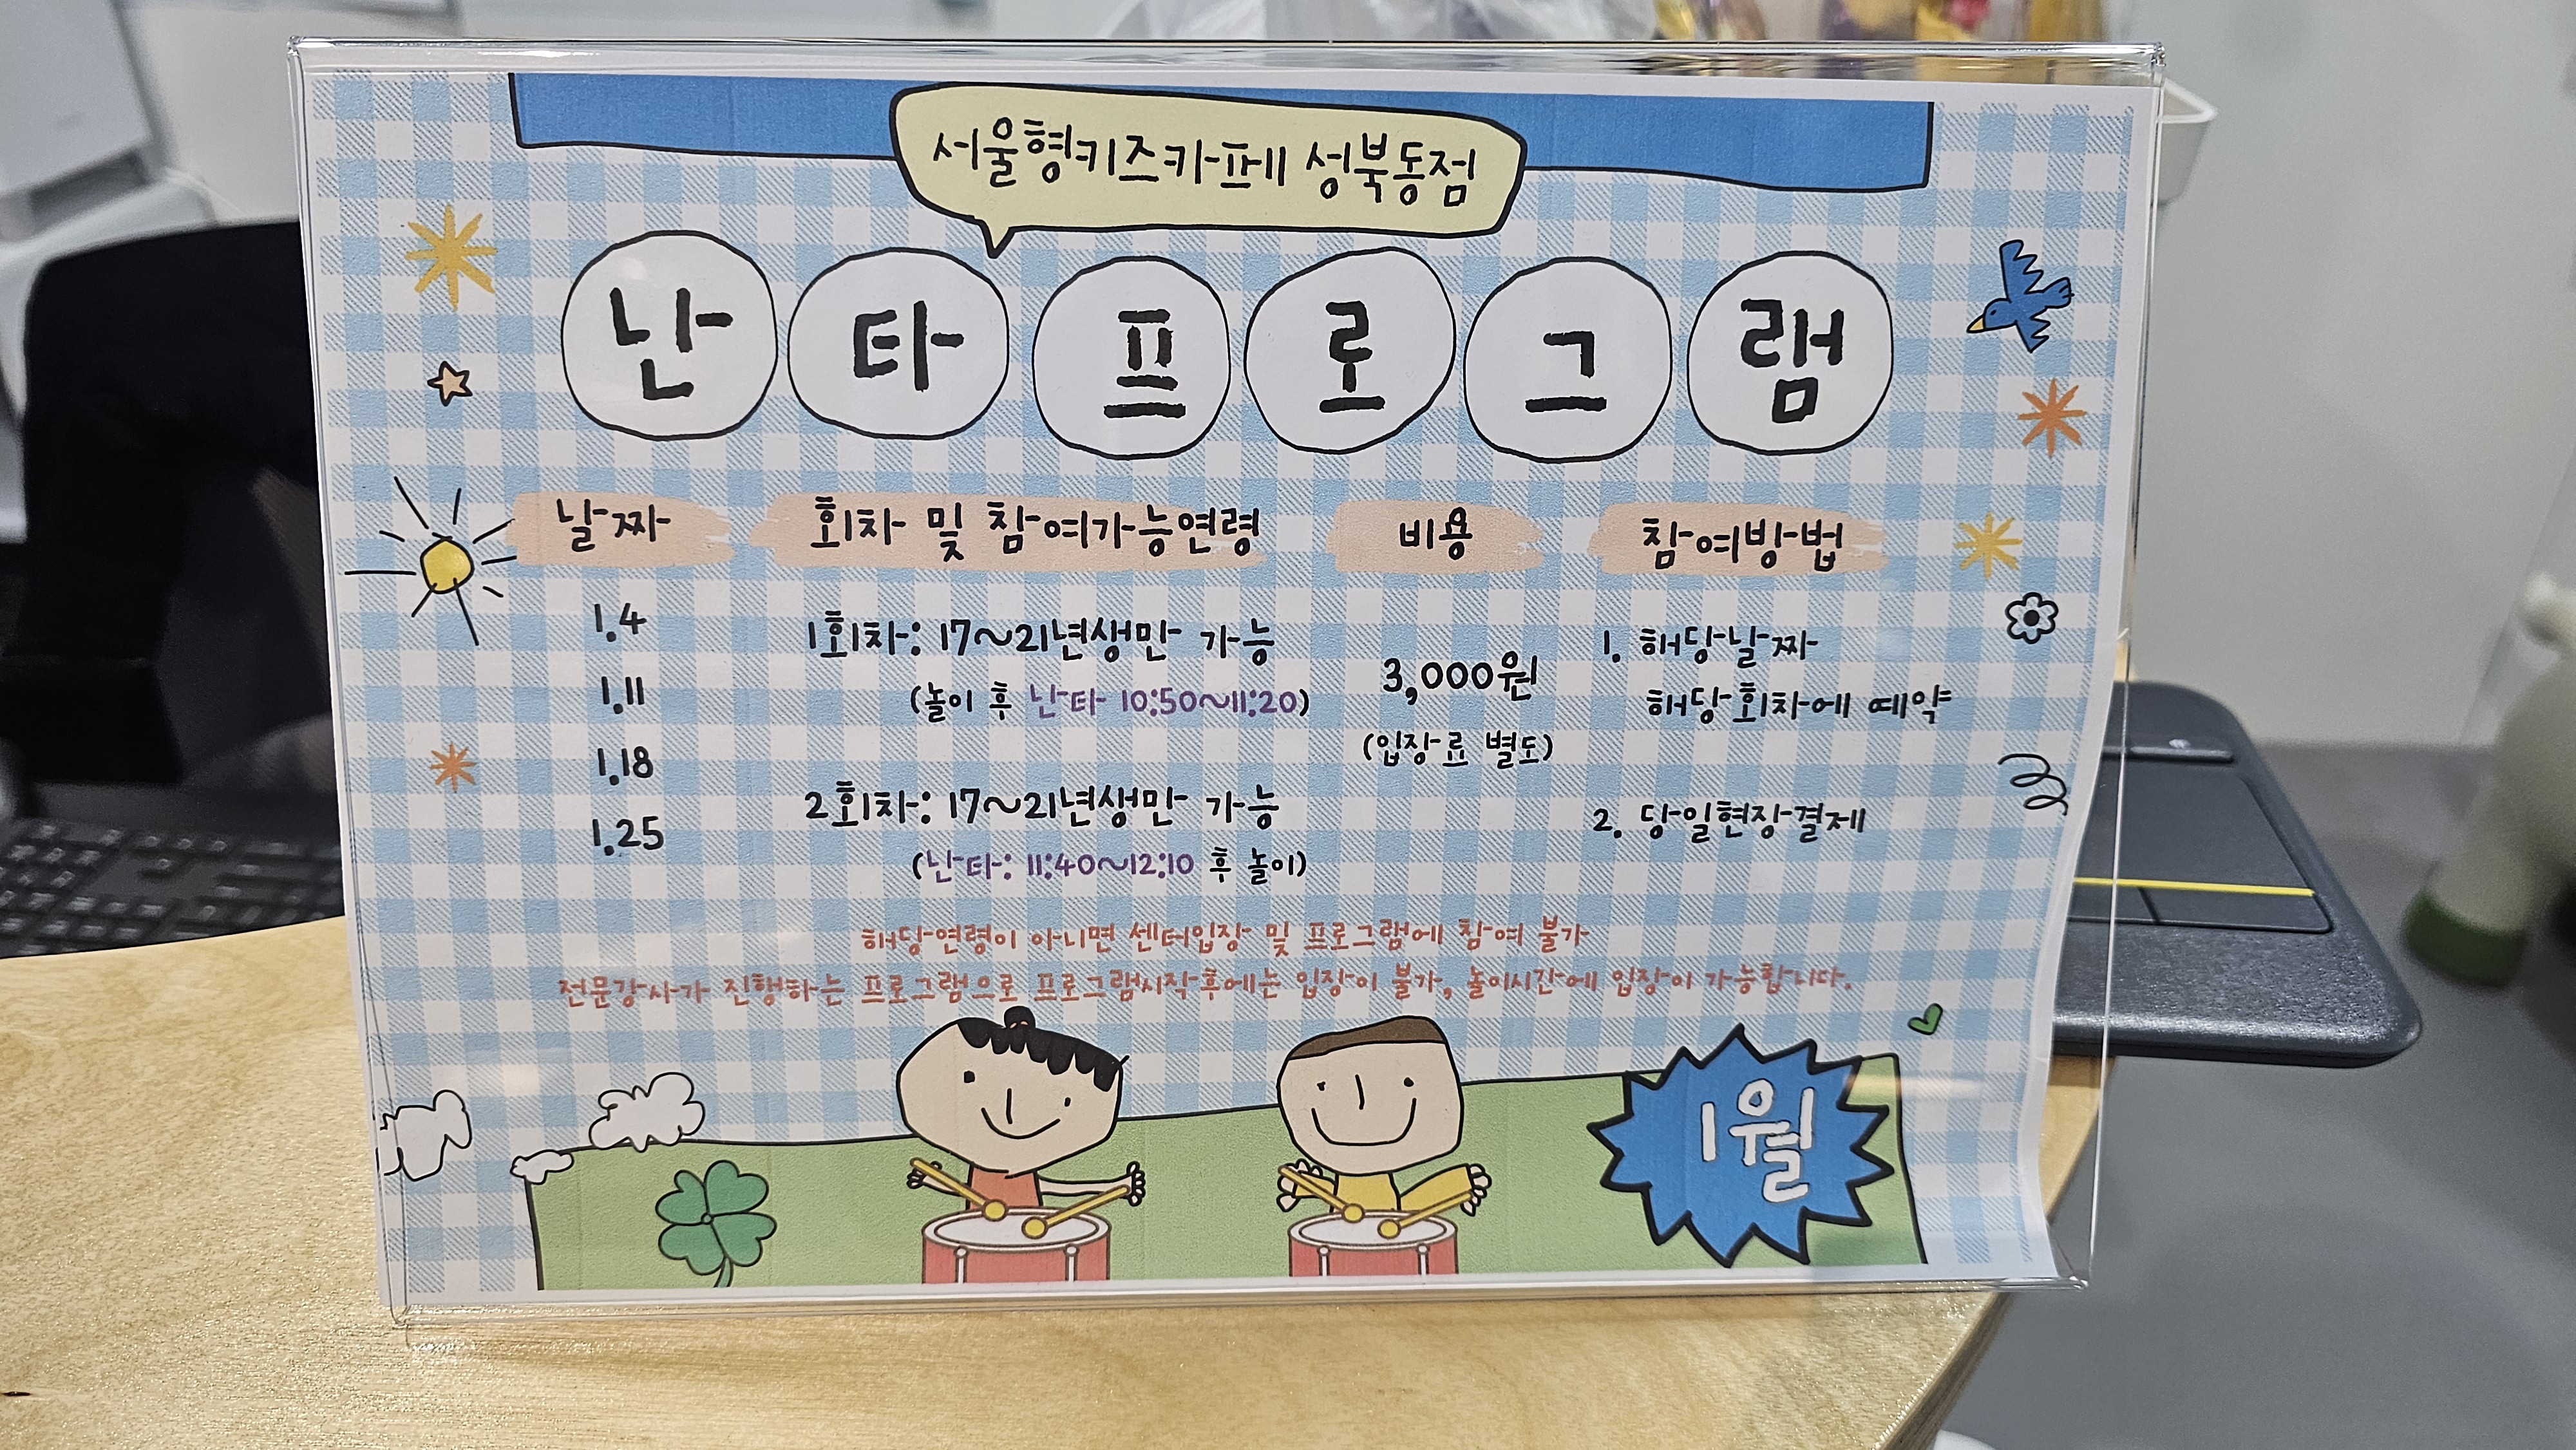 서울형키즈카페 성북동점
난타프로그램
날짜 회차 및 참여가능연령 비용 참여방법
1.4
1.11
1.18
1.25
1회차: 17~21년생만 가능
(놀이 후 난타 10:50~11:20)
2회차: 17~21년생만 가능
(난타: 11:40~12:10 후 놀이)
3,000원
(입장료 별도)
1. 해당날짜
해당회차에 예약
2. 당일현장결제
해당연령이 아니면 센터입장 및 프로그램에 참여 불가
전문강사가 진행하는 프로그램으로 프로그램시작후에는 입장이 불가, 놀이시간에 입장이 가능합니다.
1월